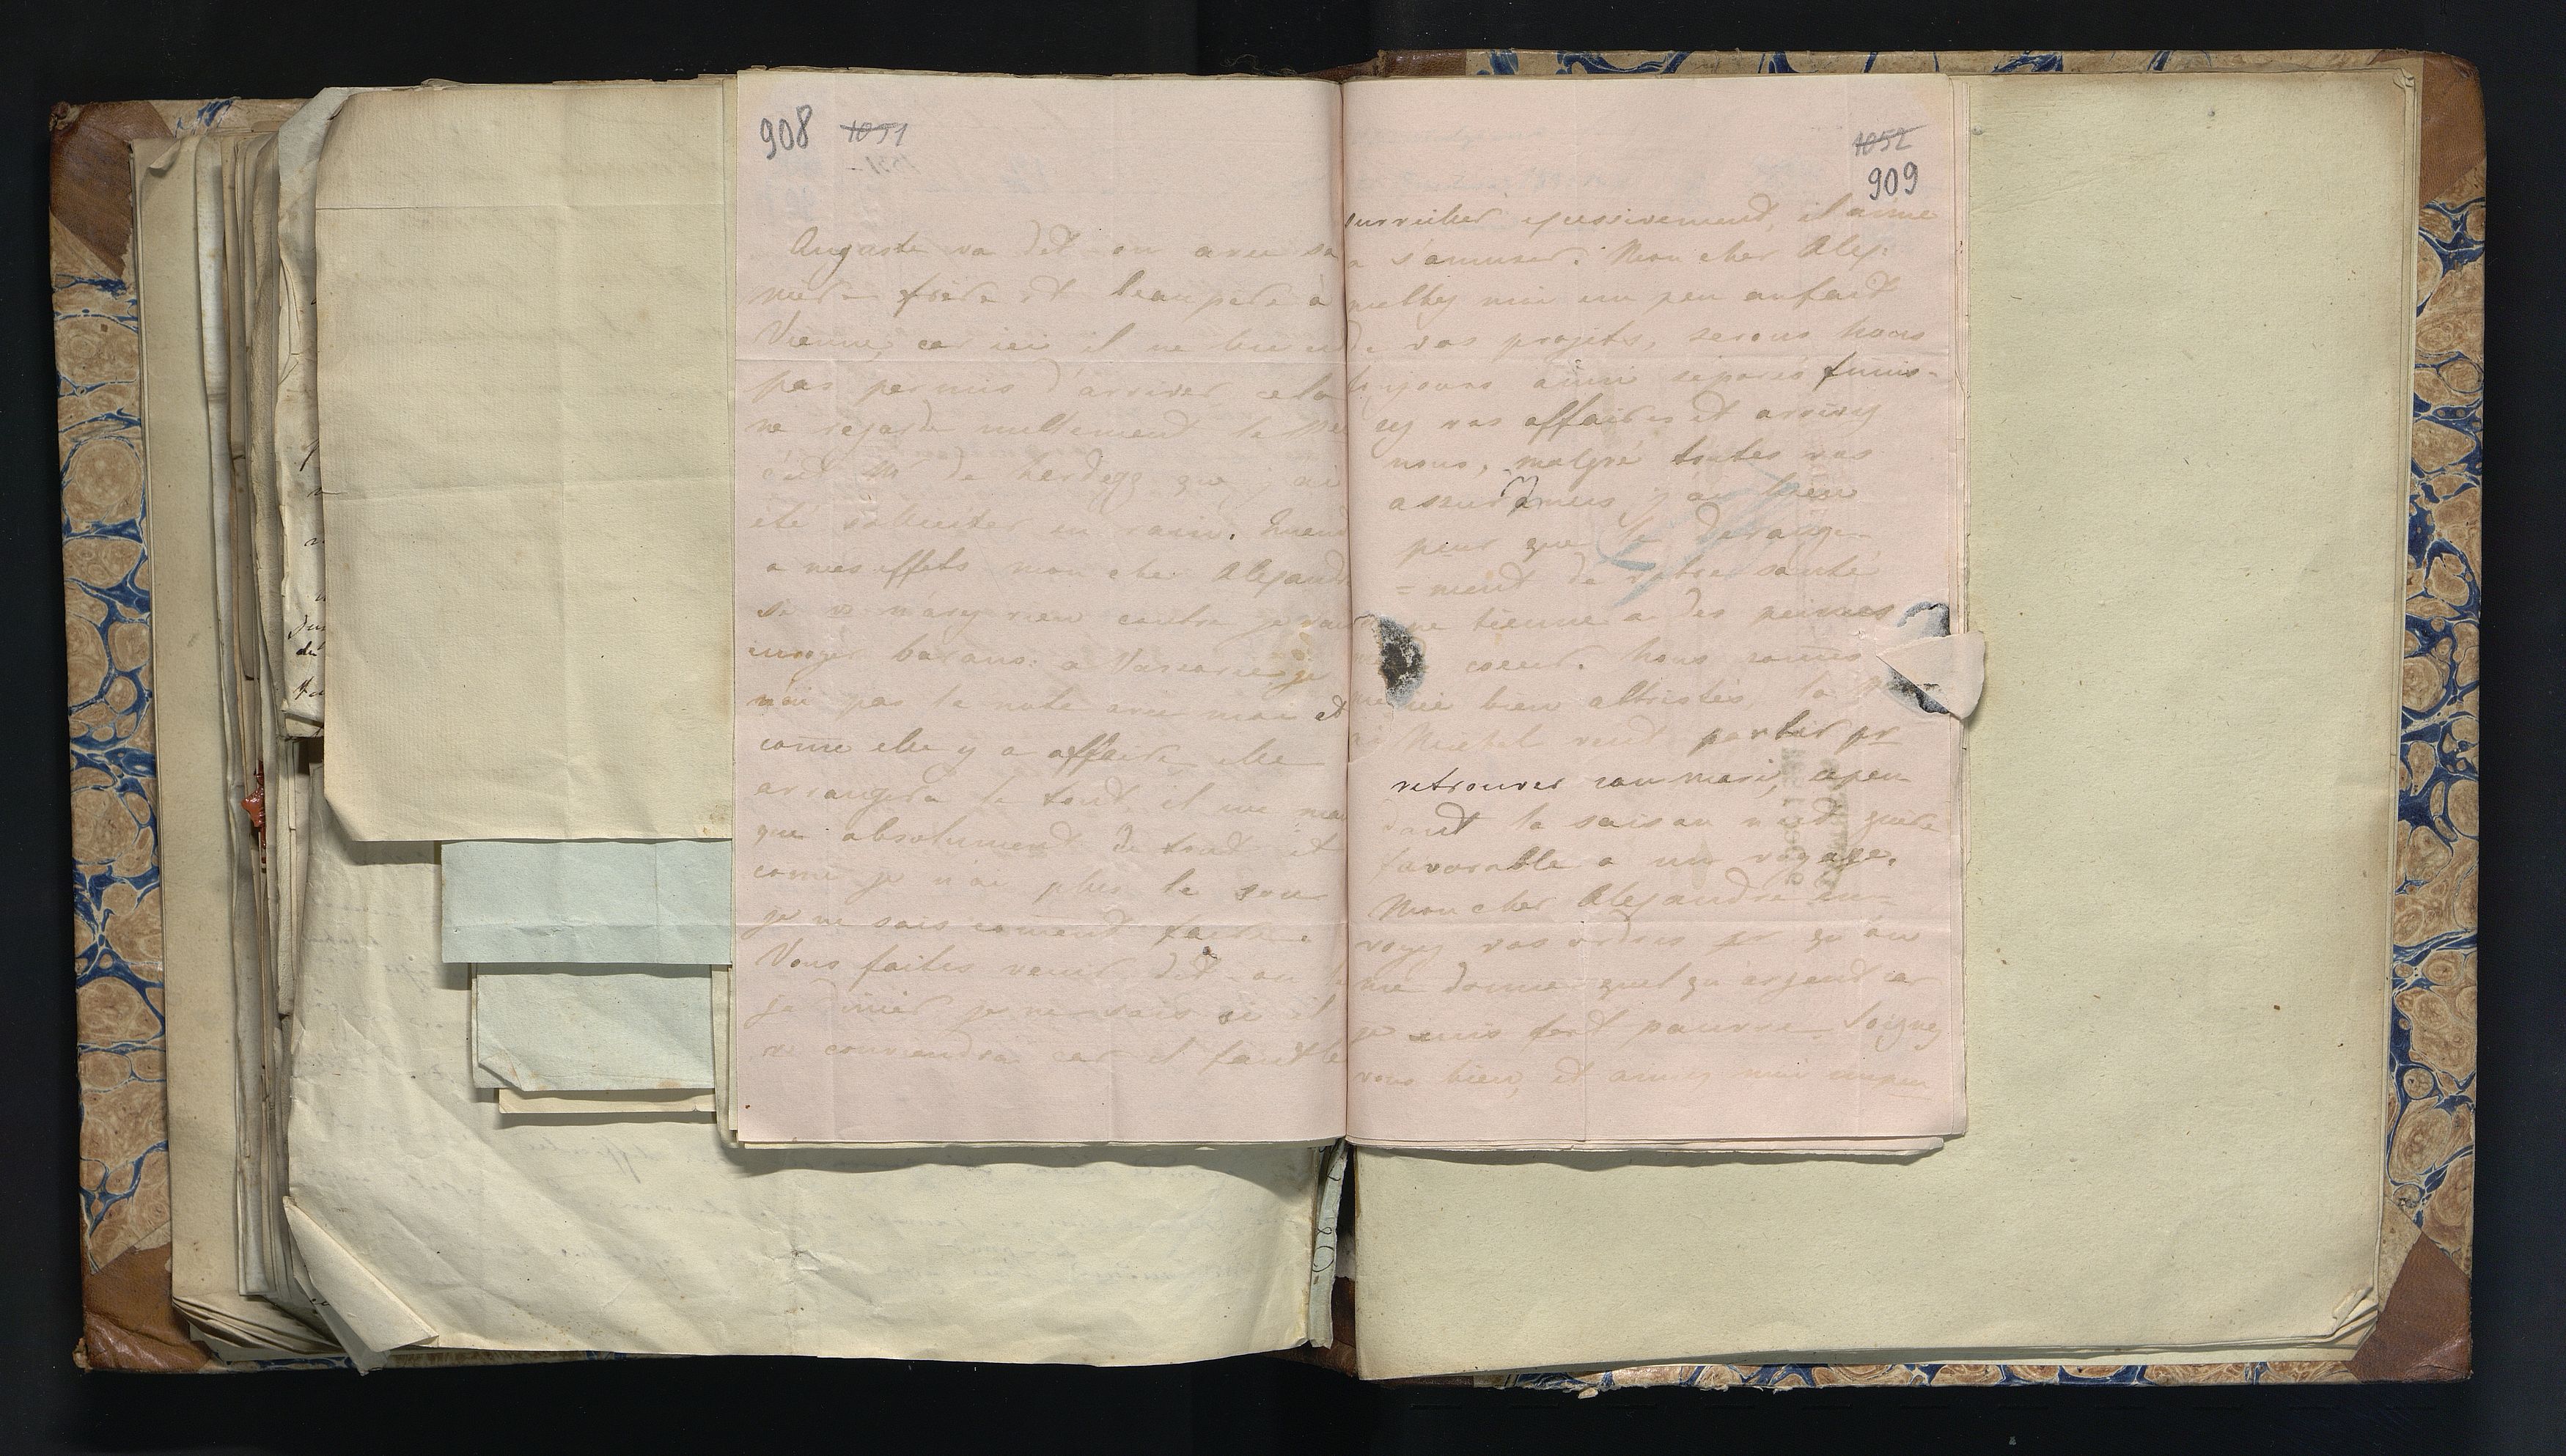 908 1051
Auguste va dit on avec sa
mere frere et beaupere à
Vienne, car ici il ne lui est
pas permis d'arriver, cela
ne regarde nullement le
c'est Mr de Herdegg que j'ai
été solliciter en vain. Quend
a mes effets mon cher Alexandre
si v n'avez rien contre je vais
envoyer a je
n'ai pas la note avec moi et
come elle y a affaire elle
arrangera le tout, il me man
que absolument de tout et
come je n'ai plus le sou
je ne sais coment faire.
Vous faites venir, dit-on le
ja je ne sais si il
v. conviendra car il faut le
1052
909
surveiller excessivement, il aime
a s'amuser. Mon cher Alex:
mettez moi un peu aufait
de vos projets, serons nous
toujours ainsi séparés finis-
sez vos affaires et arrivez
nous, malgré toutes vos
assurances j'ai bien
peur que le derange-
= ment de votre santé
ne tienne a des peines
de coeur. Nous somes
ici bien attristés la Pss
Michel veut partir pr
retrouver son mari, cepen
dant la saison n'est guere
favorable a un voyage.
Mon cher Alexandre en=
voyez vos ordres qu'on
me donne quelqu'argent car
je suis fort pauvre. Soignez
vous bien, et aimez moi unpeu